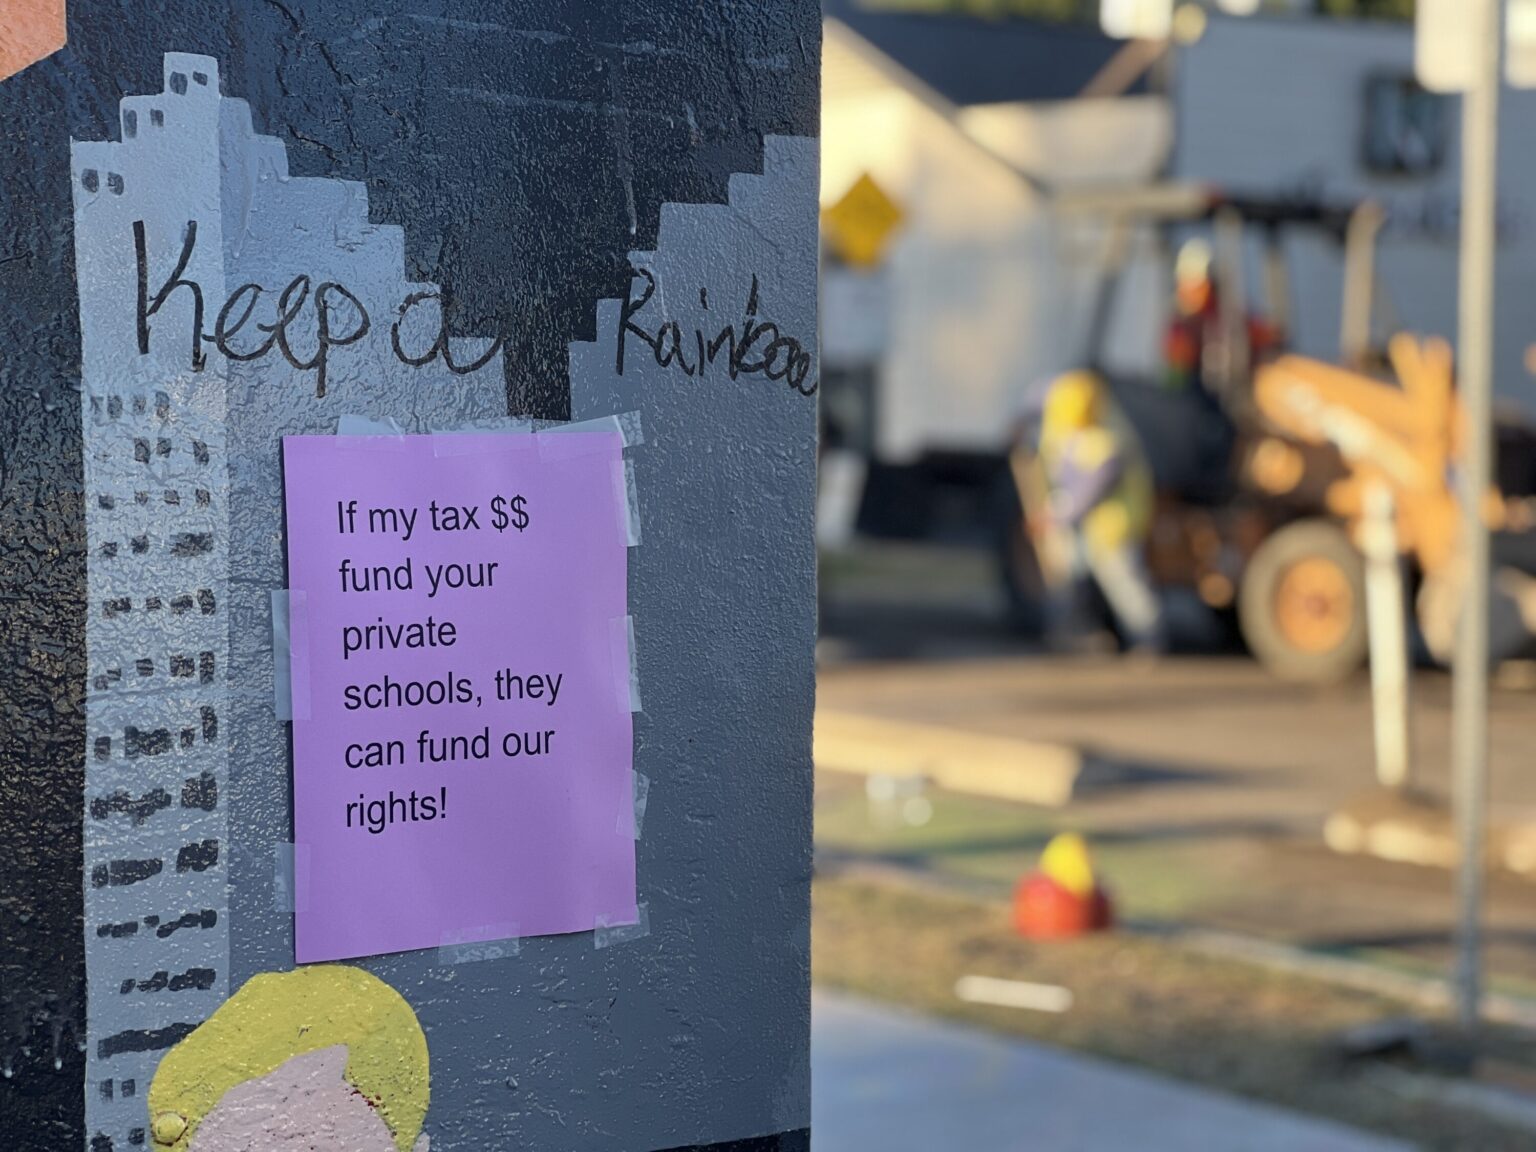 Keep a Rainbow
If my tax $$
fund your
private
schools, they
can fund our
rights!